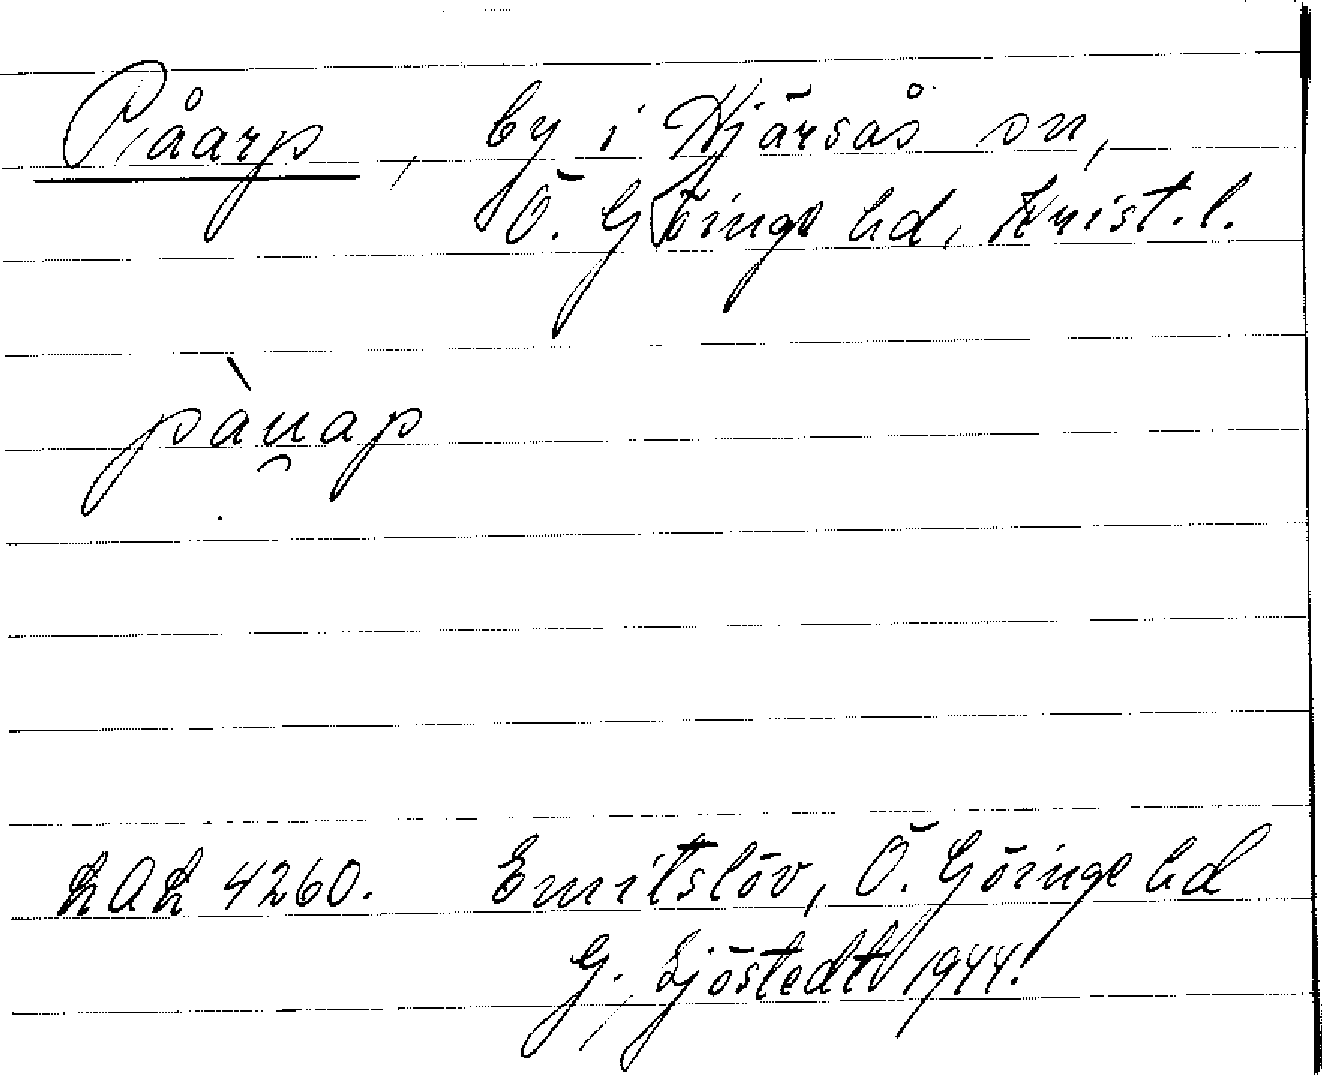 Påarp, by i Hjärsås sn,
Ö. Göinge hd, Krist. l.
pàu̯ap
LAL 4260. Emitslöv, Ö. Göinge hd
G. Sjöstedt 1944.